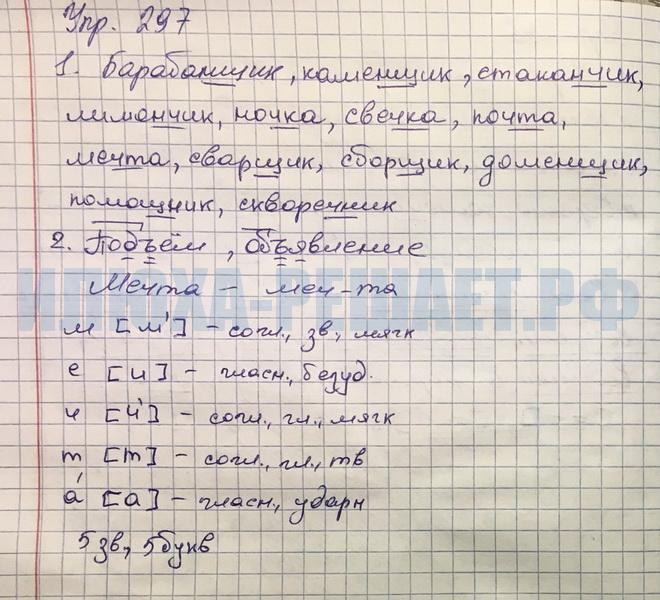 Упр. 297
1. Барабанщик, каменщик, стаканчик,
лимончик, ночка, свечка, почта,
мечта, сварщик, сборщик, доменщик,
помощник, скворечник
2. Подъём, объявление
ИЛЮХА-РЕШАЕТ.РФ
Мечта – меч-та
м [м'] – согл., зв., мягк
е [и] – гласн., безуд.
ч [ч'] – согл., гл., мягк
т [т] – согл., гл., тв
а́ [а] – гласн., ударн
5 зв, 5 букв